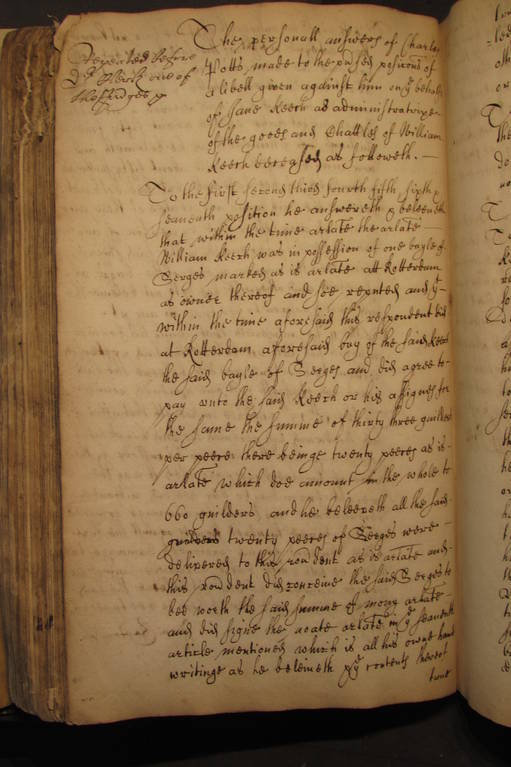 Repeated before
Dr Clerk one of
The personall answers of Charles
Potts made to the p̱ṯended positions of
a libell given against him on ye behalfe
of Jane Keech as administratrixe
of the goods and Chattles of William
Keech deceased as followeth. –
To the first second third fourth fifth sixth &
seaventh position he answereth & beleeveth
that within the tyme arlate the arlate
William Keech was in possession of one bayle of
Serges marked as is arlate att Rotterdam
as owner thereof and soe reputed and yt
within the time aforesaid this respondent did
at Rotterdam aforesaid buy of the said Keech
the said bayle of Serges and did agree to
pay unto the said Keech or his assignes for
the same the summe of thirty three guilders
per peece there beinge twenty peeces as is
arlate which doe amount in the whole to
660 guilders and he beleeveth all the said
twenty peeces of Serges were
delivered to this rondent as is arlate and
this rondent did conceive the said Serges to
bee worth the said summe of mony arlate
and did signe the noate arlate in ye seaventh
article mentioned which is all his owne hand
writinge as he beleiveth & ye contents thereof
true